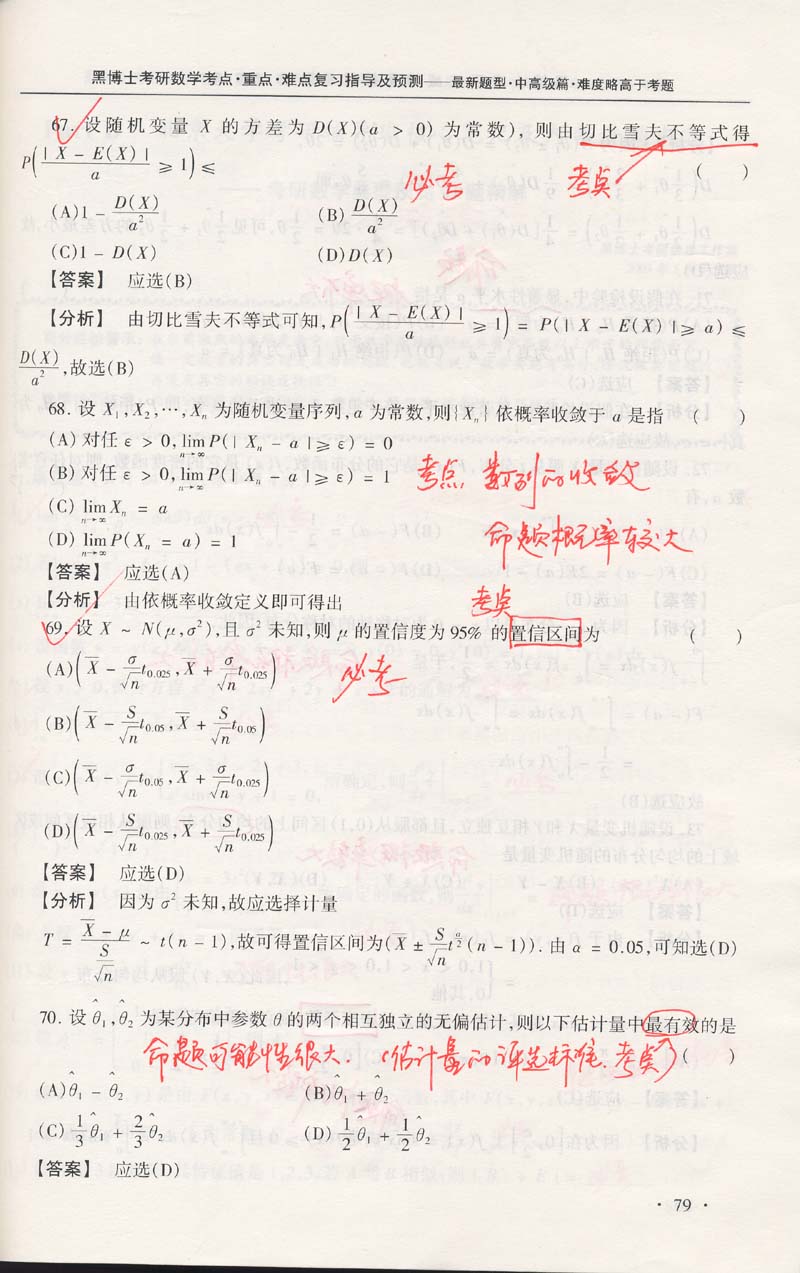 黑博士考研数学考点·重点·难点复习指导及预测——最新题型·中高级篇·难度略高于考题
67. 设随机变量 X 的方差为 D(X)(a > 0) 为常数), 则由切比雪夫不等式得
P(|X - E(X)|/a ≥ 1) ≤ ( )
必考 考点
(A)1 - D(X)/a² (B) D(X)/a²
(C)1 - D(X) (D)D(X)
【答案】 应选(B)
【分析】 由切比雪夫不等式可知, P(|X - E(X)|/a ≥ 1) = P(|X - E(X)| ≥ a) ≤
D(X)/a²,故选(B)
68. 设 X₁,X₂,…,Xₙ 为随机变量序列, a 为常数,则{Xₙ}依概率收敛于 a 是指 ( )
(A) 对任 ε > 0, lim n→∞ P(|Xₙ - a|≥ε) = 0
(B) 对任 ε > 0, lim n→∞ P(|Xₙ - a|≥ε) = 1
考点 数列的收敛
(C) lim n→∞ Xₙ = a
(D) lim n→∞ P(Xₙ = a) = 1
命题概率较大
【答案】 应选(A)
【分析】 由依概率收敛定义即可得出
考点
69. 设 X ~ N(μ,σ²),且 σ² 未知,则 μ 的置信度为 95% 的置信区间为 ( )
(A)(X̄ - σ/√n t₀.₀₂₅, X̄ + σ/√n t₀.₀₂₅)
必考
(B)(X̄ - S/√n t₀.₀₅, X̄ + S/√n t₀.₀₅)
(C)(X̄ - σ/√n t₀.₀₅, X̄ + σ/√n t₀.₀₂₅)
(D)(X̄ - S/√n t₀.₀₂₅, X̄ + S/√n t₀.₀₂₅)
【答案】 应选(D)
【分析】 因为 σ² 未知,故应选择计量
T = (X̄ - μ)/(S/√n) ~ t(n - 1),故可得置信区间为(X̄ ± S/√n t^(α/2)(n - 1)). 由 α = 0.05,可知选(D)
70. 设 θ̂₁,θ̂₂ 为某分布中参数 θ 的两个相互独立的无偏估计,则以下估计量中最有效的是
命题可能性很大. (估计量的评选标准. 考点) ( )
(A)θ̂₁ - θ̂₂ (B)θ̂₁ + θ̂₂
(C) 1/3 θ̂₁ + 2/3 θ̂₂ (D) 1/2 θ̂₁ + 1/2 θ̂₂
【答案】 应选(D)
· 79 ·